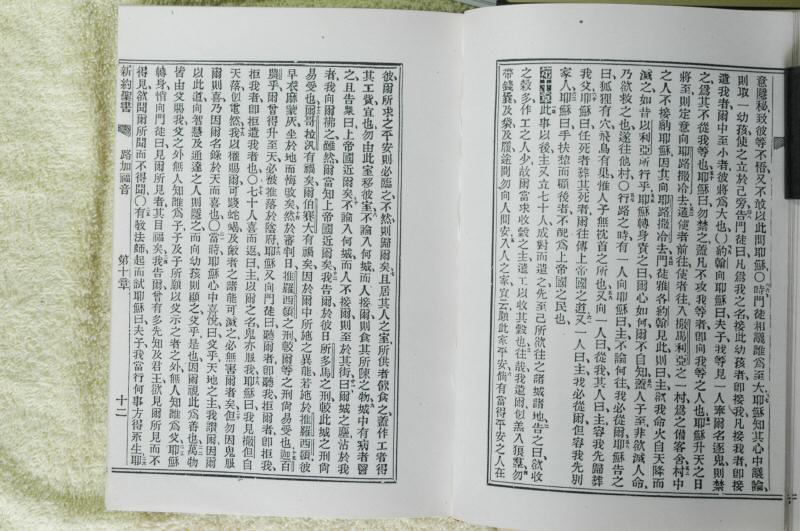 意隱秘致彼等不悟又不放以此問耶穌○時門徒相議誰爲至大耶穌知其心中議論
則取一幼孩使之立於己旁告門徒曰凡爲我之名接此幼孩者卽接我凡接我者卽接
遣我者爾中至小者彼將爲大也○約翰向耶穌曰夫子我等見一人奉爾名逐鬼則禁
之爲其不從我等也耶穌曰勿禁之蓋凡不攻我等者卽向我等之人也耶穌升天之日
將至則定意向耶路撒冷去遣使者前往使者往入撒馬利亞之一村爲之備客舍村中
之人不接納耶穌因其向耶路撒冷去門徒雅各約翰見此則曰主欲我命火自天降而
滅之如昔以利亞所行乎耶穌轉身責之曰爾心如何爾不自知蓋人子至非欲滅人命
乃欲救之也遂往他村○行路之時有一人向耶穌曰主不論何往我必從爾耶穌告之
曰狐狸有穴飛鳥有巢惟人子無枕首之所也又向一人曰從我其人曰主容我先歸葬
我父耶穌曰任死者葬其死者爾往傳上帝國之道又一人曰主我必從爾但容我先別
家人耶穌曰手扶犂而顧後者不配爲上帝國之民也
第十章此事以後主又立七十人成對而遣之先至己所欲往之諸城諸地告之曰欲收
之穀多作工之人少故爾當求收穀之主遣工以收其穀也往哉我遣爾似羔入狼羣勿
帶錢囊及袋及履途間勿向人問安入人之家宜云願此家平安倘有當得平安之人在
彼爾所求之平安則必臨之不然則歸爾矣且居其人之室所供者儘食之蓋作工者得
其工賞宜也勿由此室移彼室不論入何城而人接爾則食其所陳之物城中有病者醫
之且告衆曰上帝國近爾矣不論入何城而人不接爾則至於其街曰爾城之塵沾於我
者我向爾拂之雖然爾當知上帝國近爾矣我告爾於彼日所多馬之刑較此城之刑尚
易受也爾哥拉汎有禍矣爾伯賽大有禍矣因於爾中所施之異能若施於推羅西頓彼
早衣麻蒙灰坐於地而悔改矣然於審判日推羅西頓之刑較爾等之刑尚易受也迦百
農乎爾曾得升至天必被推落於陰府耶穌又向門徒曰聽爾者卽聽我拒爾者卽拒我
拒我者卽拒遣我者也○七十人喜而返曰主以爾之名鬼亦服我耶穌曰我見撒但自
天落似電然我以權賜爾可踐蛇蝎及敵者之諸能可滅之必無害爾者矣但勿因鬼服
爾則喜乃因爾名錄於天而喜也○當時耶穌心中喜悅曰父乎天地之主我讚爾因爾
以此道向智慧及通達之人則隱之而向幼孩則顯之父乎是也因爾視此爲善也萬物
皆由父賜我父之外無人知誰爲子子及子所願以父示之者之外無人知誰爲父耶穌
轉身悄向門徒曰見爾所見者其目福矣我告爾曾有多先知及君王欲見爾所見而不
得見欲聞爾所聞而不得聞○有敎法師起而試耶穌曰夫子我當行何事方得永生耶
新約聖書 路加福音 第十章 十二